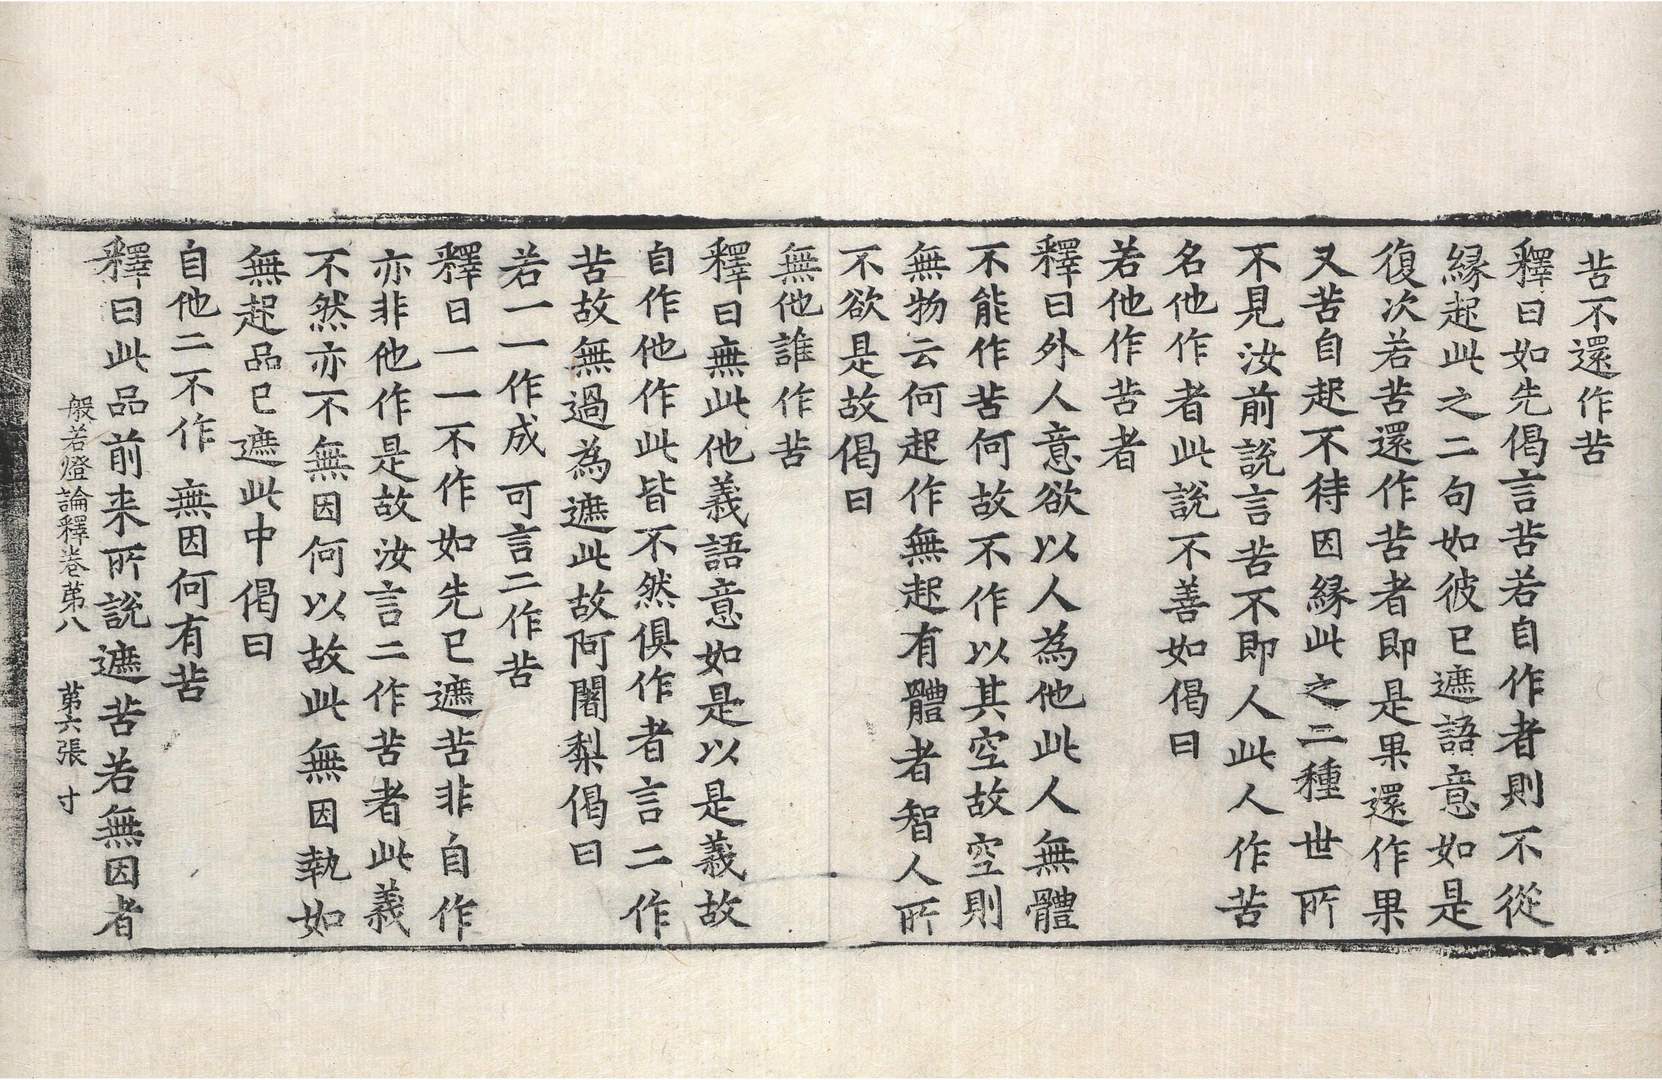 苦不還作苦
釋曰如先偈言苦若自作者則不從
縁起此之二句如彼已遮語意如是
復次若苦還作苦者即是果還作果
又苦自起不待因縁此之二種世所
不見汝前說言苦不即人此人作苦
名他作者此說不善如偈曰
若他作苦者
釋曰外人意欲以人為他此人無體
不能作苦何故不作以其空故空則
無物云何起作無起有體者智人所
不欲是故偈曰
無他誰作苦
釋曰無此他義語意如是以是義故
自作他作此皆不然俱作者言二作
苦故無過為遮此故阿闍梨偈曰
若一一作成 可言二作苦
釋曰一一不作如先已遮苦非自作
亦非他作是故汝言二作苦者此義
不然亦不無因何以故此無因執如
無起品已遮此中偈曰
自他二不作 無因何有苦
釋曰此品前来所說遮苦若無因者
般若燈論釋卷第八 第六張 寸